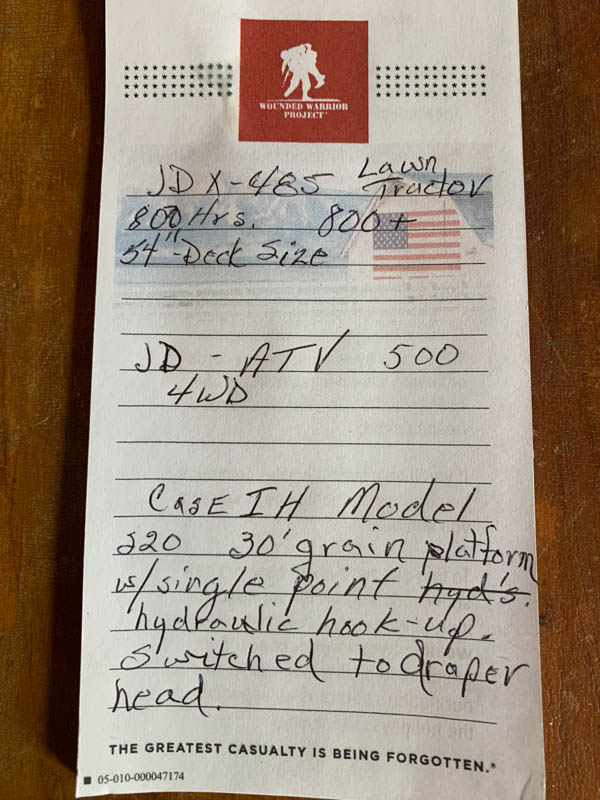 WOUNDED WARRIOR
PROJECT®
JD X-485 Lawn Tractor
800 Hrs. 800+
54"-Deck Size
JD - ATV 500
4WD
Case IH Model
320 30' grain platform
w/single point hyd's.
hydraulic hook-up.
Switched to draper
head.
THE GREATEST CASUALTY IS BEING FORGOTTEN.®
05-010-000047174